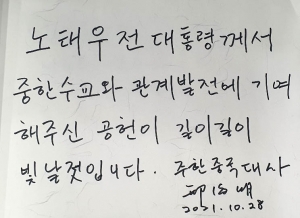 노태우 전 대통령께서
중한수교와 관계발전에 기여
해주신 공헌이 길이길이
빛날것입니다. 주한중국대사
邢海明
2021.10.28